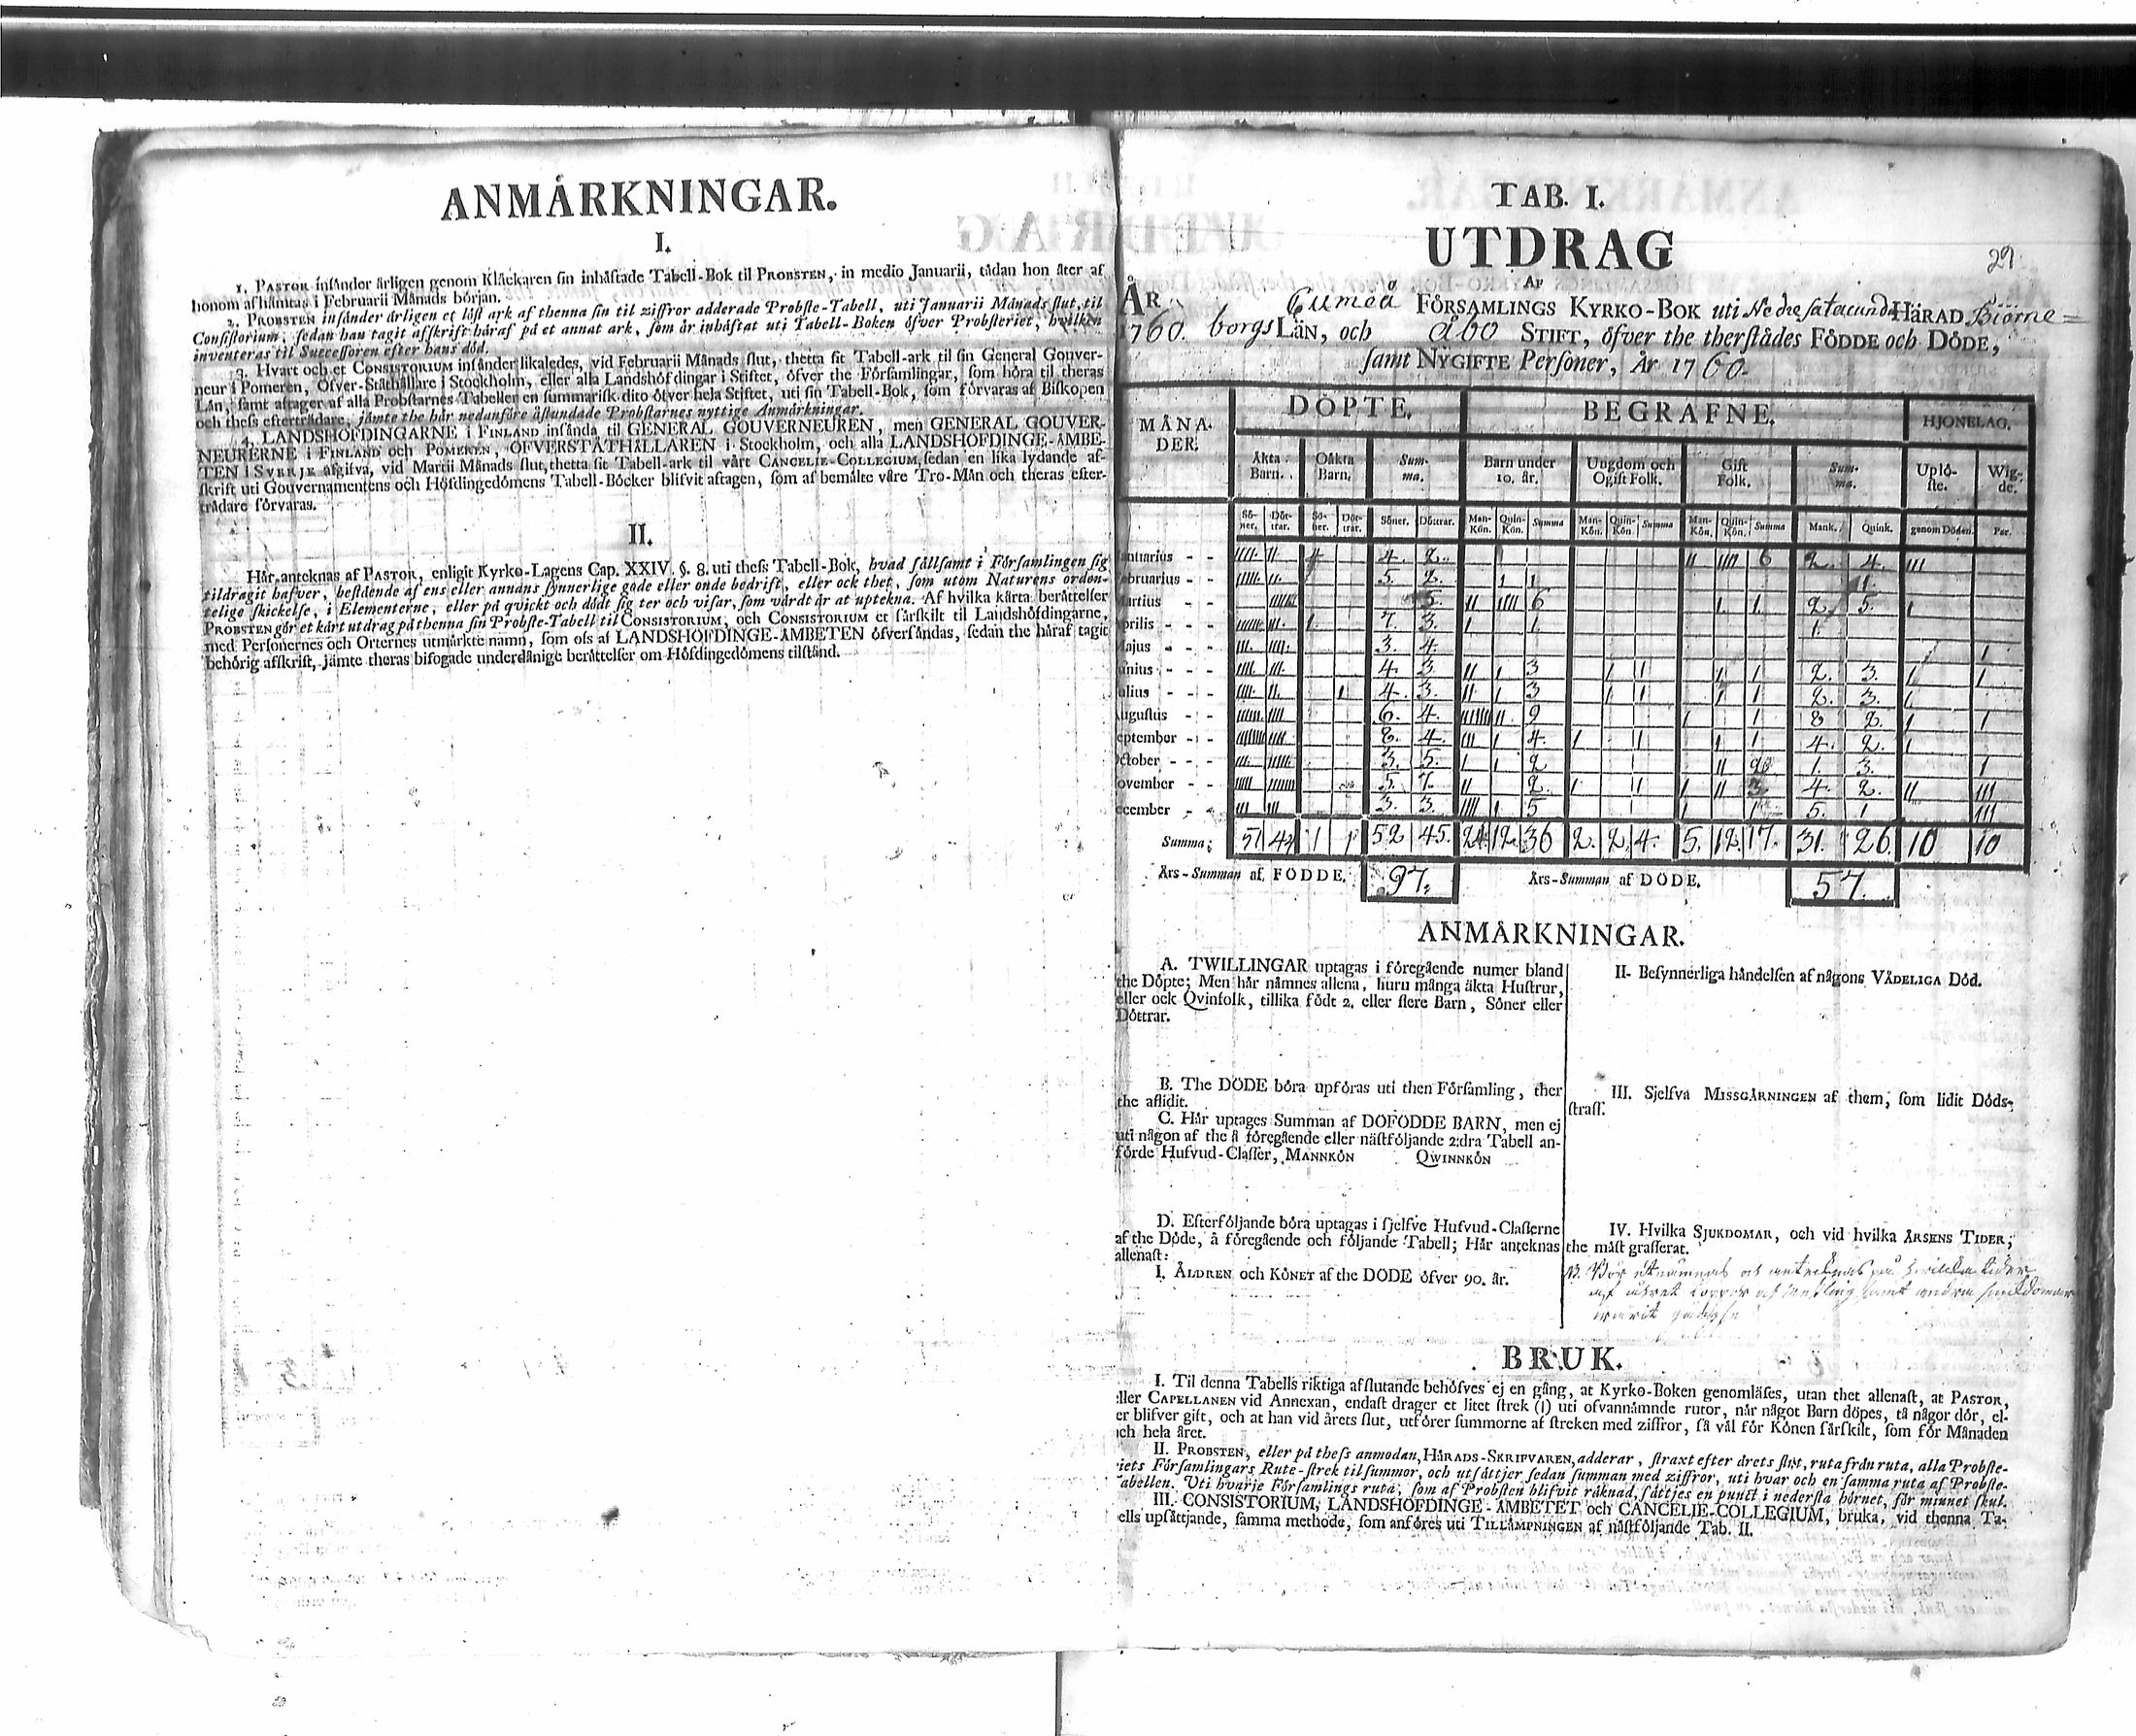 ANMÅRKNINGAR.
I.
1. PASTOR insånder årligen genom Klåckaren sin inhåftade Tabell-Bok til PROBSTEN, in medio Januarii, tådan hon åter af
honom afhåmtas i Februarii Månads början.
2. PROBSTEN insånder årligen et låst ark af thenna sin til ziffror adderade Probste-Tabell, uti Januarii Månads slut, til
Consistorium; sedan han tagit afskrift håraf på et annat ark, som år inhåftat uti Tabell-Boken öfver Probsteriet, hvilken
inventeras til Successoren efter hans död.
3. Hvart och et CONSISTORIUM insånder likaledes, vid Februarii Månads slut, thetta sit Tabell-ark til sin General Gouver-
neur i Pomeren, Öfver-Ståthållare i Stockholm, eller alla Landshöfdingar i Stiftet, öfver the Församlingar, som höra til theras
Lån, samt aftager af alla Probstarnes Tabeller en summarisk dito öfver hela Stiftet, uti sin Tabell-Bok, som förvaras af Biskopen
och thess efterträdare, jåmte the hår nedanföre åstundade Probstarnes nyttige Anmårkningar.
4. LANDSHÖFDINGARNE i FINLAND insånda til GENERAL GOUVERNEUREN, men GENERAL GOUVER-
NEURERNE i FINLAND och POMEREN, ÖFVERSTÅTHÅLLAREN i Stockholm, och alla LANDSHÖFDINGE-ÅMBE-
TEN i SVERJE afgifva, vid Martii Månads slut, thetta sit Tabell-ark til vårt CANCELIE-COLLEGIUM, sedan en lika lydande af-
skrift uti Gouvernamentens och Höfdingedömens Tabell-Böcker blifvit aftagen, som af bemålte våre Tro-Mån och theras efter-
trådare förvaras.
II.
Hår anteknas af PASTOR, enligit Kyrko-Lagens Cap. XXIV. §. 8. uti thess Tabell-Bok, hvad sållsamt i Församlingen sig
tildragit hafver, bestående af ens eller annans synnerlige gode eller onde bedrift, eller ock thet, som utom Naturens orden-
telige skickelse, i Elementerne, eller på qvickt och dödt sig ter och visar, som vårdt år at uptekna. Af hvilka kårta beråttelser
PROBSTEN gör et kårt utdrag på thenna sin Probste-Tabell til CONSISTORIUM, och CONSISTORIUM et sårskilt til Landshöfdingarne,
med Personernes och Orternes utmårkte namn, som oss af LANDSHÖFDINGE-ÅMBETEN öfversåndas, sedan the håraf tagit
behörig afskrift, jåmte theras bifogade underdånige beråttelser om Höfdingedömens tilstånd.
TAB. I.
UTDRAG
29
AF
ÅR Cumeå FÖRSAMLINGS KYRKO-BOK uti Nedresatacunda HÄRAD, Biörne=
1760. borgs LÄN, och Åbo STIFT, öfver the therstädes FÖDDE och DÖDE,
samt NYGIFTE Personer, År 1760.
MÅNA-DER. DÖPTE. BEGRAFNE. HJONELAG.
Åkta Barn. Oåkta Barn. Sum-ma. Barn under 10. år. Ungdom och Ogift Folk. Gift Folk. Sum-ma. Uplö-ste. Wig-de.
Sö-ner. Döt-trar. Sö-ner. Döt-trar. Söner. Döttrar. Man-Kön. Quin-Kön. Summa Man-Kön. Quin-Kön. Summa Man-Kön. Quin-Kön. Summa Mank. Quink. genom Döden. Par.
Januarius - - 4. 2. 6 2. 4.
Februarius - - 5. 2. 1 1
Martius - - 5. 6 1 2 5.
Aprilis - - 7. 3. 1 1.
Majus - - 3. 4.
Junius - - 4. 3. 3 1 1 2. 3.
Julius - - 4. 3. 3 1 1 2. 3.
Augustus - - 6. 4. 9 1 8 2.
September - - 8. 4. 4. 1 1 4. 2.
October - - 3. 5. 2 1. 3.
November - - 5. 7. 2. 1 3 4. 2.
December - - 3. 3. 5 1 5. 1
Summa; 51 44 1 1 52 45. 24 12. 36 2. 2. 4. 5. 12 17. 31. 26. 10 10
Års-Summan af FÖDDE. 97. Års-Summan af DÖDE. 57.
ANMÅRKNINGAR.
A. TWILLINGAR uptagas i föregående numer bland
the Döpte; Men hår nåmnes allena, huru många åkta Hustrur,
eller ock Qvinfolk, tillika födt 2. eller flere Barn, Söner eller
Döttrar.
B. The DÖDE böra upföras uti then Församling, ther
the aflidit.
C. Hår uptages Summan af DÖFÖDDE BARN, men ej
uti någon af the å föregående eller nåstföljande 2:dra Tabell an-
förde Hufvud-Classer, MANNKÖN QWINNKÖN
D. Efterföljande böra uptagas i sjelfve Hufvud-Classerne
af the Döde, å föregående och följande Tabell; Hår anteknas
allenast:
I. ÅLDREN och KÖNET af the DÖDE öfver 90. år.
II. Besynnerliga håndelsen af någons VÅDELIGA Död.
III. Sjelfva MISSGÅRNINGEN af them, som lidit Döds-
straff.
IV. Hvilka SJUKDOMAR, och vid hvilka ÅRSENS TIDER,
the måst grasserat.
och antecknas på hvilka tider
af året koppor samt andra siukdomar
warit
BRUK.
I. Til denna Tabells riktiga afslutande behöfves ej en gång, at Kyrko-Boken genomlåses, utan thet allenast, at PASTOR,
eller CAPELLANEN vid Annexan, endast drager et litet strek (|) uti ofvannåmnde rutor, når något Barn döpes, tå någor dör, el-
er blifver gift, och at han vid årets slut, utförer summorne af streken med ziffror, så vål för Könen sårskilt, som för Månaden
och hela året.
II. PROBSTEN, eller på thess anmodan, HÅRADS-SKRIFVAREN, adderar, straxt efter årets slut, ruta från ruta, alla Probste-
riets Församlingars Rute-strek til summor, och utsåttjer sedan summan med ziffror, uti hvar och en samma ruta af Probste-
Tabellen. Uti hvarje Församlings ruta, som af Probsten blifvit råknad, såttjes en punct i nedersta hörnet, för minnet skul.
III. CONSISTORIUM, LANDSHÖFDINGE-ÅMBETET och CANCELIE-COLLEGIUM, bruka, vid thenna Ta-
bells upsåttjande, samma methode, som anföres uti TILLÅMPNINGEN af nåstföljande Tab. II.